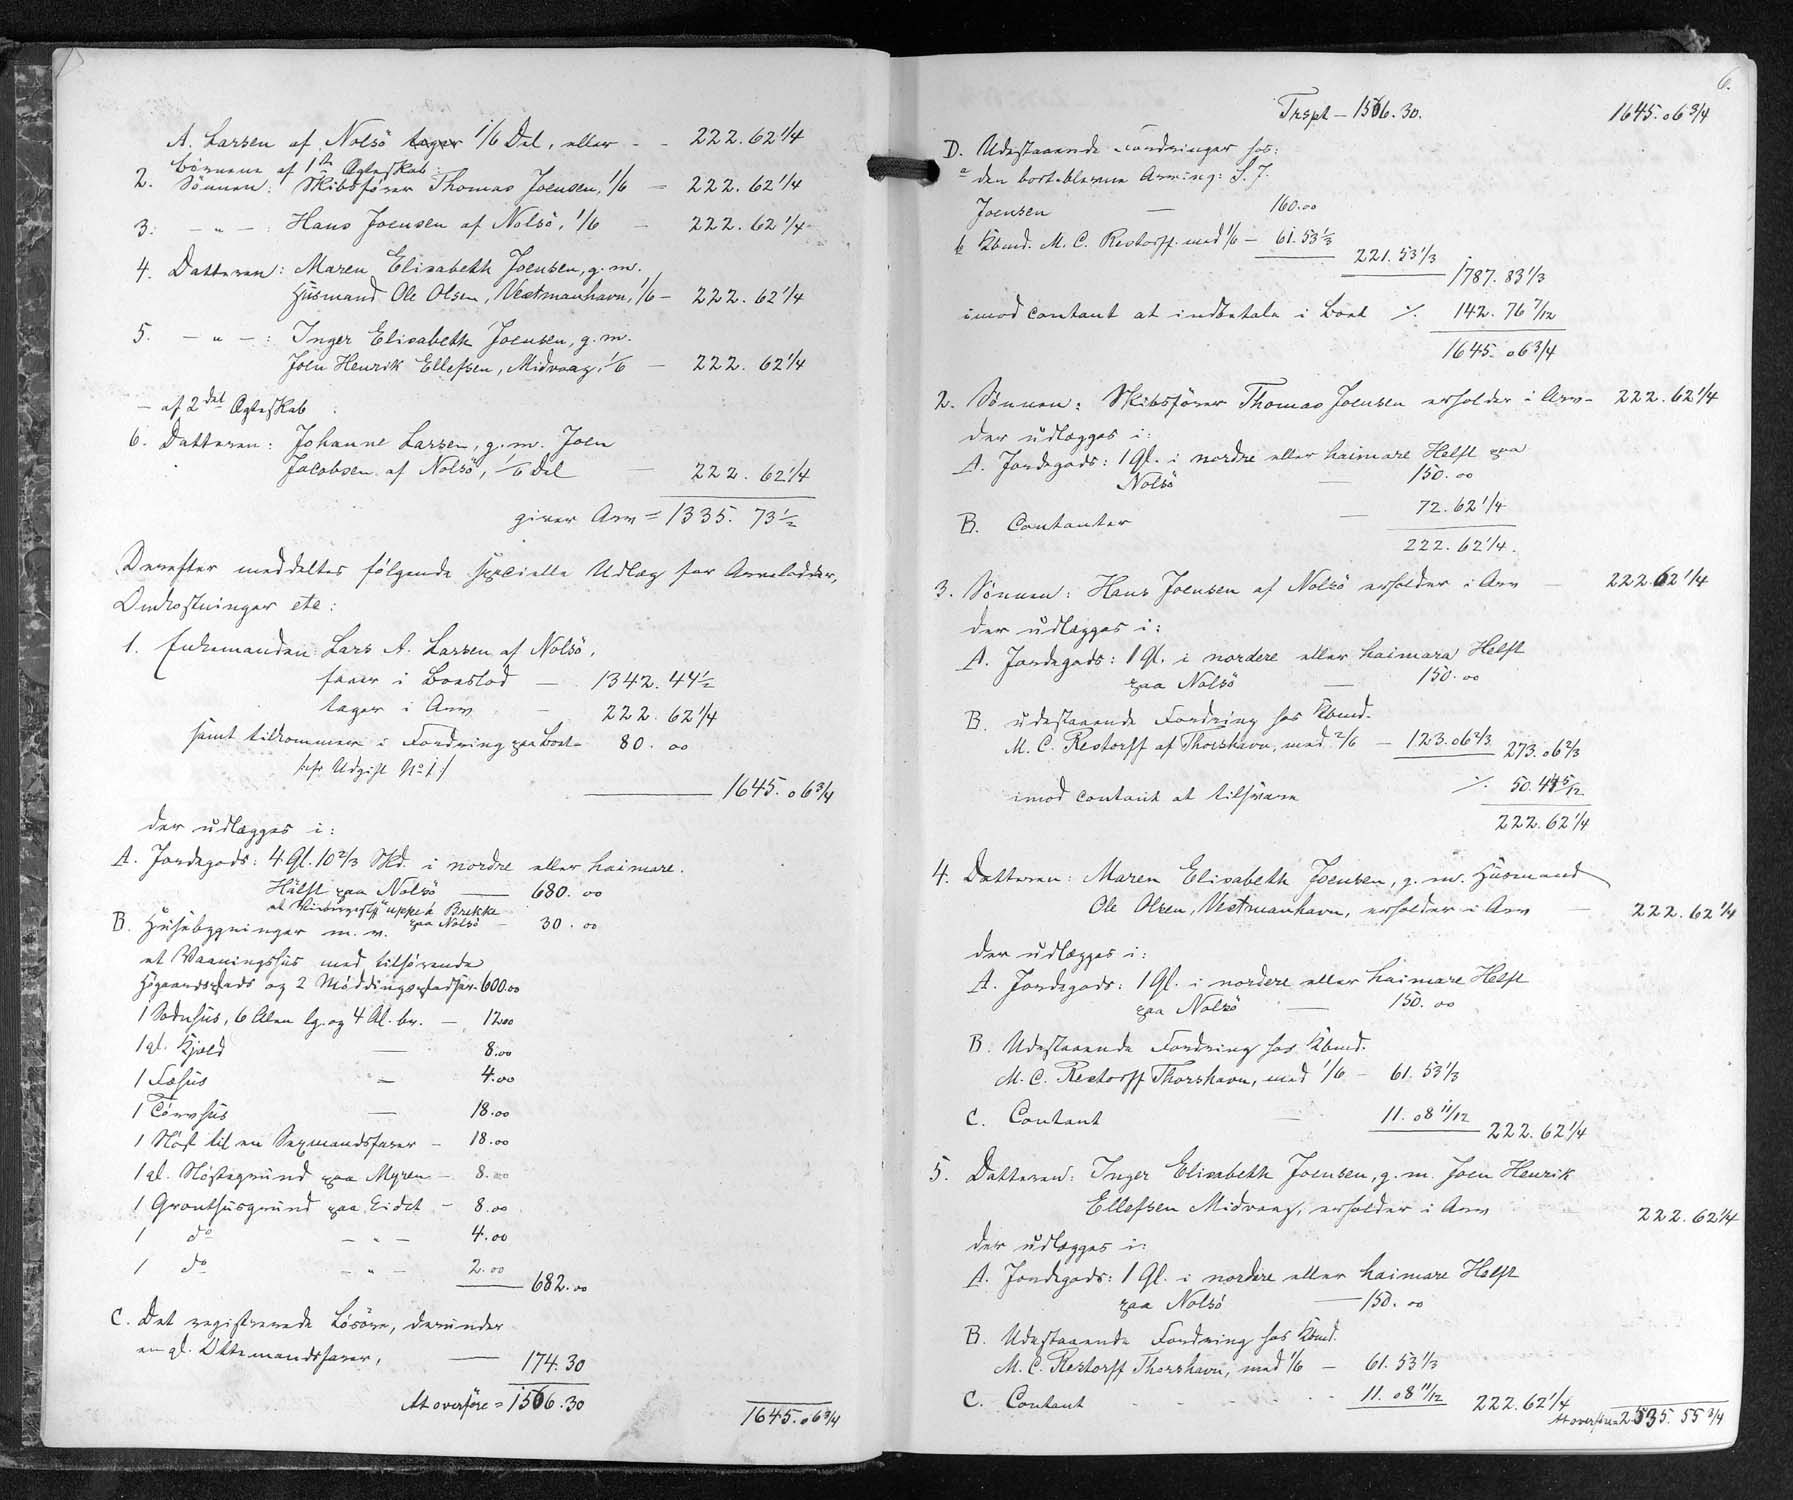 A. Larsen af Nolsö tager 1/6 Del, eller - - 222. 62 1/4
Börnene af 1ste Ægteskab:
2. Sönnen: Skibsförer Thomas Joensen, 1/6 - 222. 62 1/4
3. - " - : Hans Joensen af Nolsö, 1/6 - 222. 62 1/4
4. Datteren: Maren Elisabeth Joensen, g. m.
Husmand Ole Olsen, Vestmanhavn, 1/6 - 222. 62 1/4
5. - " - : Inger Elisabeth Joensen, g. m.
Joen Henrik Ellefsen, Midvaag, 1/6 - 222. 62 1/4
- af 2det Ægteskab :
6. Datteren: Johanne Larsen, g. m. Joen
Jacobsen af Nolsö, 1/6 Del - 222. 62 1/4
giver Arv = 1335. 73 1/2
Derefter meddeltes fölgende specielle Udlæg for Arvelodder,
Omkostninger etc:
1. Enkemanden Lars A. Larsen af Nolsö,
faaer i Boeslod - 1342. 44 1/2
tager i Arv - 222. 62 1/4
samt tilkommer i Fordring paa Boet - 80. 00
/: cfr Udgift No 1 :/
1645. 06 3/4
der udlægges i:
A. Jordegods: 4 Gl. 10 2/3 Skd. i nordre eller haimare
Hälft paa Nolsö - 680. 00
uppe á Brekke
paa Nolsö - 30. 00
B. Husebygninger m. v.
et Vaaningshus med tilhörende
og 2 Möddingstadsfär - 600.00
1 Sodnhus, 6 Alen lg. og 4 Al. br. - 12.00
1 gl. Kjald - 8.00
1 Fæhus - 4.00
1 Törvhus - 18.00
1 Nöst til en Sexmandsfarer - 18.00
1 gl. Nöstegrund paa Myren - 8.00
1 Grothusgrund paa Eidet - 8.00
1 do - " - 4.00
1 do - " - 2.00
682.00
C. Det registrerede Lösöre, derunder
en gl. Ottemandsfarer, - 174.30
At overföre = 1566.30 1645. 06 3/4
6.
Trspt - 1566.30. 1645. 06 3/4
D. Udestaaende Fordringer hos:
a den borteblevne Arving: S. J.
Joensen - 160.00
b Kbmd. M. C. Restorff med 1/6 - 61. 53 1/3
221. 53 1/3
1787. 83 1/3
imod contant at indbetale i Boet ./. 142. 76 7/12
1645. 06 3/4
2. Sönnen: Skibsförer Thomas Joensen erholder i Arv - 222. 62 1/4
der udlægges i:
A. Jordegods: 1 Gl. i nordre eller haimare Helft paa
Nolsö - 150. 00
B. Contanter - 72. 62 1/4
222. 62 1/4.
3. Sönnen: Hans Joensen af Nolsö erholder i Arv - 222. 62 1/4
der udlægges i:
A. Jordegods: 1 Gl. i nordere eller haimara Helft
paa Nolsö - 150. 00
B. udestaaende Fordring hos Kbmd.
M. C. Restorff af Thorshavn, med 2/6 - 123. 06 2/3 273. 06 2/3
imod contant at tilsvare ./. 50. 44 5/12
222. 62 1/4
4. Datteren: Maren Elisabeth Joensen, g. m. Husmand
Ole Olsen, Vestmanhavn, erholder i Arv - 222. 62 1/4
der udlægges i:
A. Jordegods: 1 Gl. i nordere eller haimare Helft
paa Nolsö - 150. 00
B. Udestaaende Fordring hos Kbmd.
M. C. Restorff Thorshavn, med 1/6 - 61. 53 1/3
C. Contant - 11. 08 11/12 222. 62 1/4
5. Datteren: Inger Elisabeth Joensen, g. m. Joen Henrik
Ellefsen Midvaag, erholder i Arv 222. 62 1/4
der udlægges i:
A. Jordegods: 1 Gl. i nordere eller haimare Helft
paa Nolsö - 150. 00
B. Udestaaende Fordring hos Kbmd.
M. C. Restorff Thorshavn, med 1/6 - 61. 53 1/3
C. Contant - - - - 11. 08 11/12 222. 62 1/4
At overföre 2535. 55 3/4